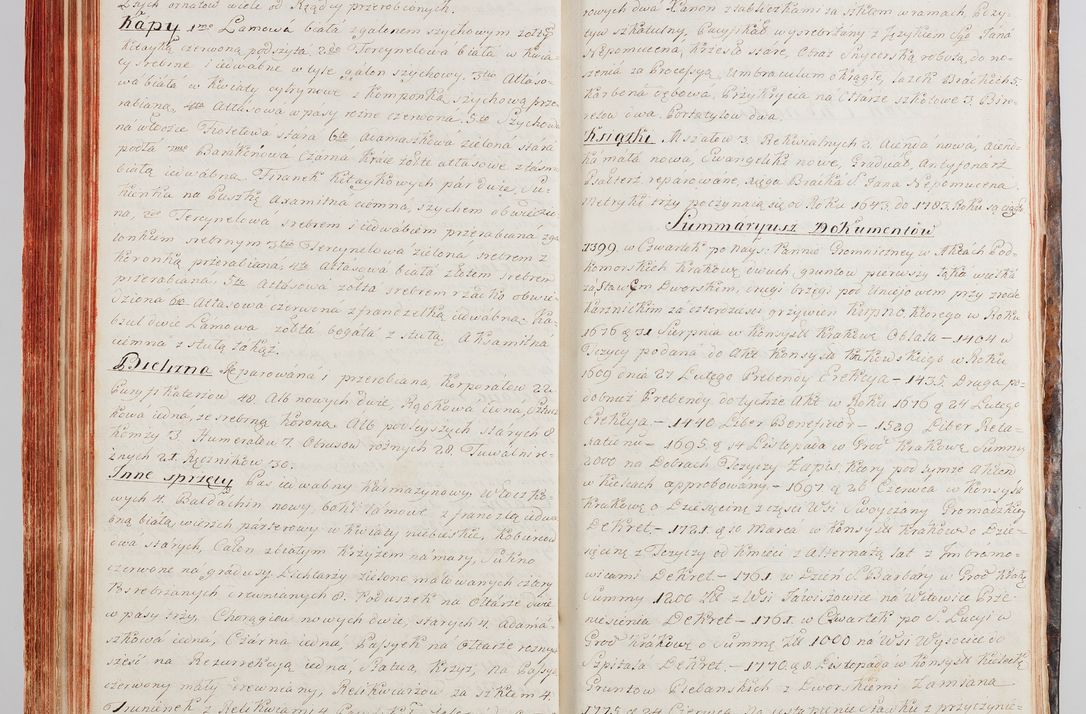 Kapy 1mo Lamowa biała z galonem szychowym żółtą
kitayką czerwoną podszyta, 2do Tercynelowa biała w kwia-
ty srebrne i iedwabne w tyle galon szychowy, 3tio Atłaso-
wa biała w kwiaty cytrynowe z kamponką szychową prze-
rabiana, 4ta Atłasowa w pasy rożne czerwona, 5ta Szychowa
na włoczce Trosetowa stara 6ta adamaszkowa zielona stara
biała iedwabna, Firanek kitaykowych par dwie, Su-
kienka na Puszkę axamitna ciemna, szychem obwiedzio-
na, 2do Tercynelowa srebrem i iedwabiem przerabiana z ga-
lonkiem srebrnym 3tia Tercynelowa zielona srebrem z
koronką przerabiana, 4ta Atłasowa biała złotem srebrem
przerabiana, 5ta Atłasowa żółta srebrem rzadko obwie-
dziona 6ta Atłasowa czerwona z frandzelką iedwabną, Ka-
bzul dwie Lamowa żółta bogata z stułą Aksamitna
ciemna z stułą także.
Bielizna Reparowana i przerobiana, Korporałow 22.
Puryfikaterzow 48. Alb nowych dwie, Rąbkowa iedna,
kowa iedna, ze srebrną koroną Alb podleyszych starych 8
Komży 3. Humerałow 7. Obrusow rożnych 28. Tuwalni rę-
cznych 21. Ręcznikow 30.
Inne sprzęty Pas iedwabny karmazynowy, Włoczko-
wych 4. Baldachin nowy, boki lamowe z frandzlą iedwa-
bną białą wierzch parterowy w kwiaty niebieskie, Kobiercow
dwa starych, Całon z białym krzyżem na mary, Sukno
czerwone na gradusy, Lichtarzy zielono malowanych cztery
Posrebrzanych drewnianych 8. Poduszek na Ołtarze dwie
w pasy trzy, Chorągiew nowych dwie, starych 4. adama-
szkowa iedna, Czarna iedna, Pasyjek na Ołtarze rożnych
sześć na Rezurrekcyą iedna, Statua, Krzyż, na Passyą
czerwony mały drewniany, Relikwiarzow za szkłem 4.
rowych dwa Kanon z tabliczkami za szkłem w ramach, Pozy-
tyw szkatulny, Pacyfikał wysrebrzany z Językiem S. Jana
Nepomucena, Krzesło stare, Obraz Snycerską robotą do no-
szenia za Processyą Umbraculum okrągłe, Lasek Brackich 5.
Karbona dębowa, Przykrycia na Ołtarze szkotowe 3. Biro-
retow dwa, Portatylow dwa.
Książki Mszałow 3. Rekwialnych 2. Agenda nowa, agend-
ka mała nowa, Ewangeliki nowe, Graduał Antyfonarz
Psałterz reparowane, xięga Bracka S. Jana Nepomucena
Metryki trzy poczynaią się od Roku 1643. do 1783. Roku są ciągłe
Summaryusz Dokumentów
1399. w Czwartek po Nays: Pannie Gromniczney w Aktach Pod-
komorskich Krakow: dwuch gruntow pierwszy Łąka wielka
za Stawem Dworskim, drugi brzegi pod Unciejowem przy zrodle
Karznickim za czterdzieści grzywien Kupno, ktorego w Roku
1676. d. 31. Sierpnia w Konsyst: Krakow: Oblata – 1404 w
Pczycy podana do Akt Konsyst: Krakowskiego w Roku
1609 dnia 27 Lutego Prebendy Erekcya – 1435. Druga po-
dobnież Prebendy do tychże Akt w Roku 1676 d. 24 Lutego
Erekcya. – 1440. Liber Beneficior: – 1529. Liber Reta-
xationū – 1695 d. 14 Listopada w Grod: Krakow: Summy
2000 na Dobrach Pczyczy Zapis, ktory pod tymże Aktem
w Kielcach approbowany – 1697 d. 26 Czerwca w Konsyst:
Krakow: o Dziesięcinę z części Wsi Swoyczany Gromadzkiey
Dekret – 1721. d. 10 Marca w Konsyst: Krakow: o Dzie-
sięcinę z Pczyczy od Kmieci z alternatą lat z Imbramo-
wicami Dekret – 1761. w Dzień S. Barbary w Grod: Krak:
Summy 1200 Zł: z Wsi Jawiszowice na Witowice Prze-
niesienia Dekret – 1761. w Czwartek po S. Łucyi w
Grod: Krakow: o Summę Zł: 1000 na Wsi Wysocice do
Szpitala Dekret – 1770. d. 8. Listopada w Konsyst: Kieleckim
Gruntow Plebanskich z Dworskiemi Zamiana